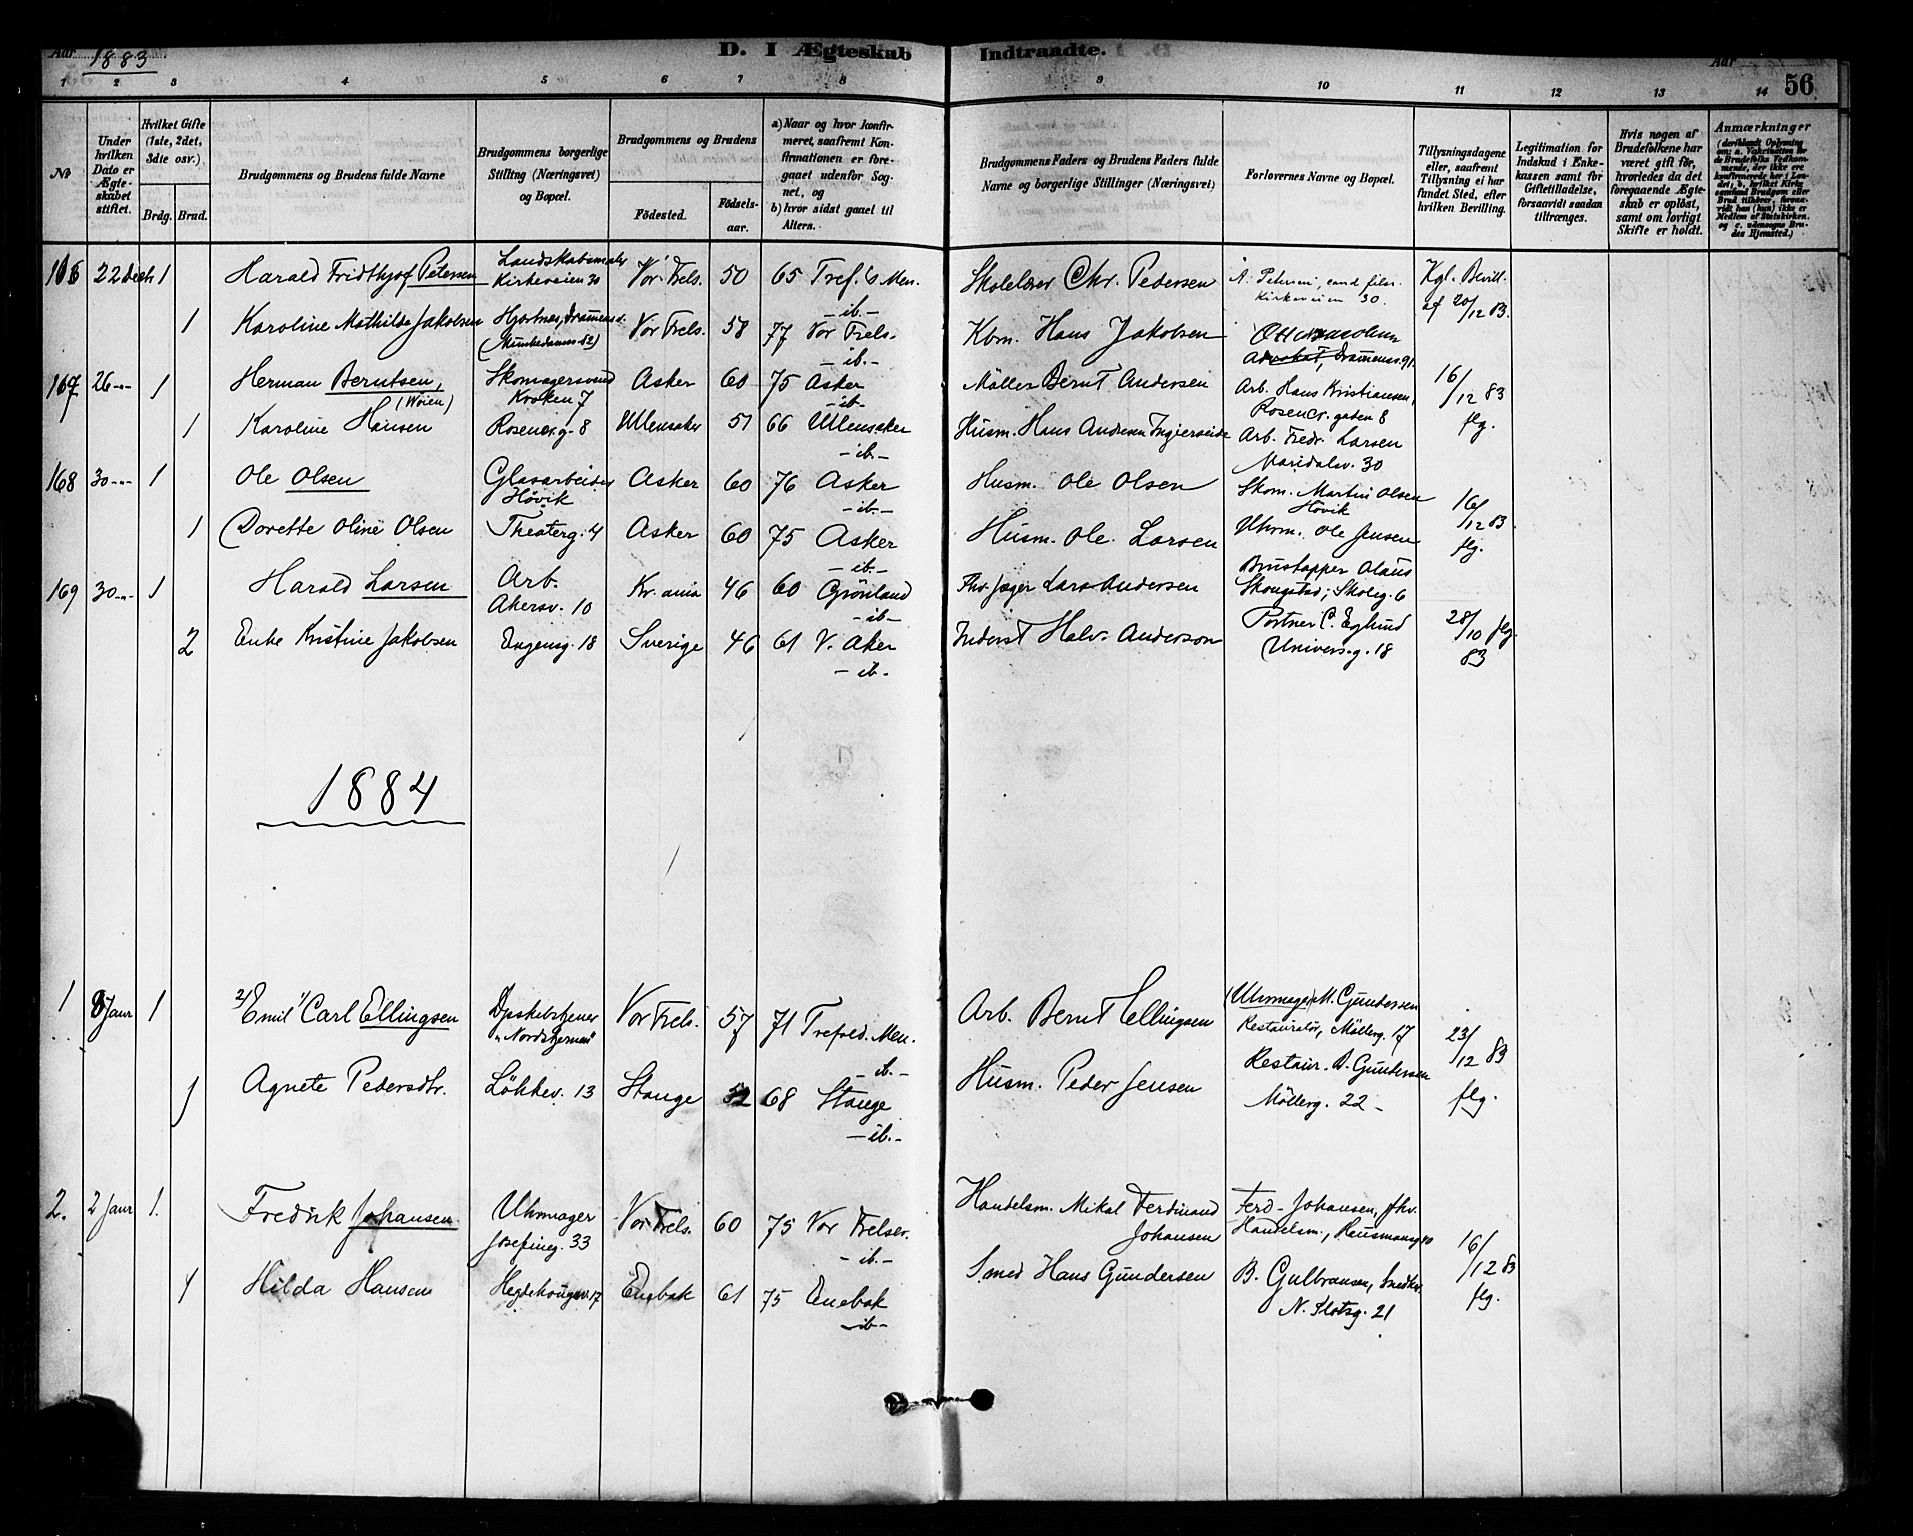 Aar 1883
D. I Ægteskab Indtraadte.
Aar
56
1 2 3 4 5 6 7 8 9 10 11 12 13 14
No
Under hvilken Dato er Ægteskabet stiftet.
Hvilket Gifte (1ste, 2det, 3die osv.).
Brdg. Brud.
Brudgommens og Brudens fulde Navne
Brudgommens borgerlige Stilling (Næringsvei) og Bopæl.
Brudgommens og Brudens
Fødested.
Fødselsaar.
a) Naar og hvor konfirmeret, saafremt Konfirmationen er foregaaet udenfor Sognet, og
b) hvor sidst gaaet til Alters.
Brudgommens Faders og Brudens Faders fulde Navne og borgerlige Stillinger (Næringsvei)
Forlovernes Navne og Bopæl.
Tillysningsdagene eller, saafremt Tillysning ei har fundet Sted, efter hvilken Bevilling.
Legitimation for Indskud i Enkekassen samt for Giftetilladelse, forsaavidt saadan tiltrænges.
Hvis nogen af Brudefolkene har været gift før, hvorledes da det foregaaende Ægteskab er opløst, samt om lovligt Skifte er holdt.
Anmærkninger
166 22 Decb 1 Harald Fridthjof Petersen Landskabsmaler Kirkeveien 30 Vor Frels. 50 65 Tref. Men. -ib.- Skolelærer Chr. Pedersen A. Petersen, cand. filos. Kirkeveien 30. Kgl. Bevill. af 20/12 83.
1 Karoline Mathilde Jakobsen Hjortnes, Drammensv. (Munkedamsv. 52) Vor Frels. 58 77 Vor Frels. -ib.- Kbm. Hans Jakobsen Otto Advokat, Drammensv. 91.
167 26 -"- 1 Herman Berntsen, (Wøien) Skomagersvend Kroken 7 Asker 60 75 Asker -ib- Møller Bernt Andersen Arb. Hans Kristiansen, Rosencr. gaden 8 16/12 83 flg.
1 Karoline Hansen Rosencr.g. 8 Ullensaker 51 66 Ullensaker -ib.- Husm. Hans Andersen Arb. Fredr. Larsen Maridalsv. 30
168 30 -"- 1 Ole Olsen Glasarbeider Høvik Asker 60 76 Asker -ib.- Husm. Ole Olsen Skom. Martin Olsen Høvik 16/12 83 flg.
1 Dorette Oline Olsen Theaterg. 4 Asker 60 75 Asker -ib.- Husm. Ole Larsen Uhrm. Ole Jensen
169 30 -"- 1 Harald Larsen Arb. Akersv. 10 Kr.ania 46 60 Grønland -ib- Fhv. Jæger Lars Andersen Brustapper Olaus Skougstad, Skoleg. 6 28/10 83 flg.
2 Enke Kristine Jakobsen Eugensg. 18 Sverige 46 61 V. Aker -ib.- Inderst Halv. Anderson Portner C. Eglund Univers.g. 18
1884
1 8 Janr 1 2) Emil 1) Carl Ellingsen "Nordstjernen" Vor Frels. 57 71 Trefold. Men. -ib.- Arb. Bernt Ellingsen (Uhrmager) M. Gundersen Restauratør, Møllerg. 17 23/12 83 flg.
1 Agnete Pedersdtr. Løkkev. 13 Stange 52 68 Stange -ib.- Husm. Peder Jensen Restaur. B. Gundersen Møllerg. 22 -
2. 2 Janr 1. Fredrik Johansen Uhrmager Josefineg. 33 Vor Frels. 60 75 Vor Frelser. -ib.- Handelsm. Mikal Ferdinand Johansen Ferd. Johansen, fhv. Handelsm., Rausmansg. 10 16/12 83 flg.
1 Hilda Hansen Hegdehougsv. 17 Enebak 61 75 Enebak -ib- Smed Hans Gundersen B. Gulbransen, Snedker N. Slotsg. 21